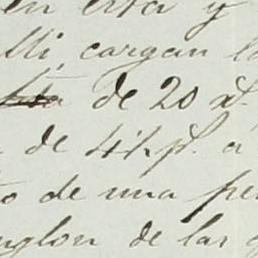 en esta y
alli, cargan l
de 20 x.
de 4 1/2 p. a
o de una pe
nglon de las g